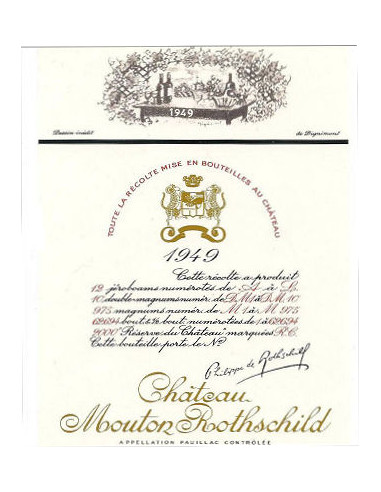 1949
Dessin inédit
de Dignimont
TOUTE LA RÉCOLTE MISE EN BOUTEILLES AU CHÂTEAU
1949
Cette récolte a produit
12 jéroboams numérotés de A à L
10 double-magnums numér. de D.M1 à D.M.10
975 magnums numér. de M1 à M 975
62694 bout. & ½ bout. numérotées de 1 à 62694
2000 "Réserve du Château" marquées R.C.
Cette bouteille porte le No
Philippe de Rothschild
Château
Mouton Rothschild
APPELLATION PAUILLAC CONTRÔLÉE